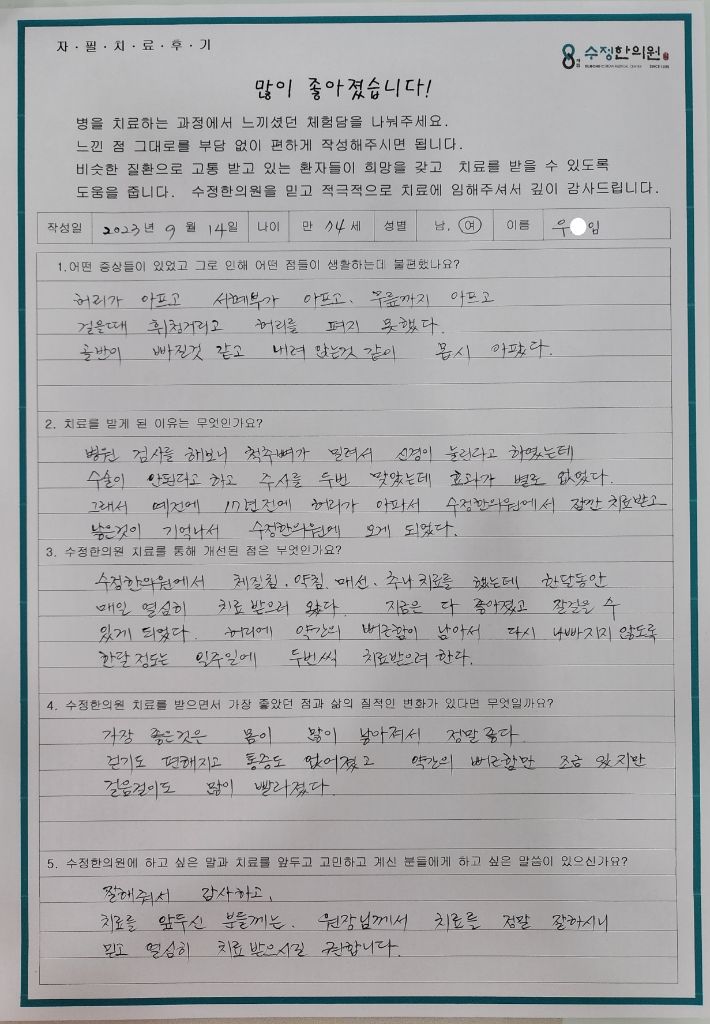 자·필·치·료·후·기
수정한의원
SINCE 1986
많이 좋아졌습니다!
병을 치료하는 과정에서 느끼셨던 체험담을 나눠주세요.
느낀 점 그대로를 부담 없이 편하게 작성해주시면 됩니다.
비슷한 질환으로 고통 받고 있는 환자들이 희망을 갖고 치료를 받을 수 있도록
도움을 줍니다. 수정한의원을 믿고 적극적으로 치료에 임해주셔서 깊이 감사드립니다.
작성일 2023년 9월 14일 나이 만 74세 성별 남, 여 이름 우 임
1.어떤 증상들이 있었고 그로 인해 어떤 점들이 생활하는데 불편했나요?
허리가 아프고 서혜부가 아프고, 무릎까지 아프고
걸을때 휘청거리고 허리를 펴지 못했다.
골반이 빠질것 같고 내려 앉는것 같이 몹시 아팠다.
2. 치료를 받게 된 이유는 무엇인가요?
병원 검사를 해보니 척추뼈가 밀려서 신경이 눌린다고 하였는테
수술이 안된다고 하고 주사를 두번 맞았는데 효과가 별로 없었다.
그래서 예전에 17년전에 허리가 아파서 수정한의원에서 잠깐 치료받고
낳은것이 기억나서 수정한의원에 오게 되었다.
3. 수정한의원 치료를 통해 개선된 점은 무엇인가요?
수정한의원에서 체질침·약침·매선·추나 치료를 했는데 한달동안
매일 열심히 치료 받으러 왔다. 지금은 다 좋아졌고 잘걸을 수
있게 되었다. 허리에 약간의 뻐근함이 남아서 다시 나빠지지 않도록
한달 정도는 일주일에 두번씩 치료받으려 한다.
4. 수정한의원 치료를 받으면서 가장 좋았던 점과 삶의 질적인 변화가 있다면 무엇일까요?
가장 좋은것은 몸이 많이 낳아져서 정말 좋다.
걷기도 편해지고 통증도 없어졌고 약간의 뻐근함만 조금 있지만
걸음걸이도 많이 빨라졌다.
5. 수정한의원에 하고 싶은 말과 치료를 앞두고 고민하고 계신 분들에게 하고 싶은 말씀이 있으신가요?
잘해줘서 감사하고,
치료를 앞두신 분들께는, 원장님께서 치료를 정말 잘하시니
믿고 열심히 치료 받으시길 권합니다.